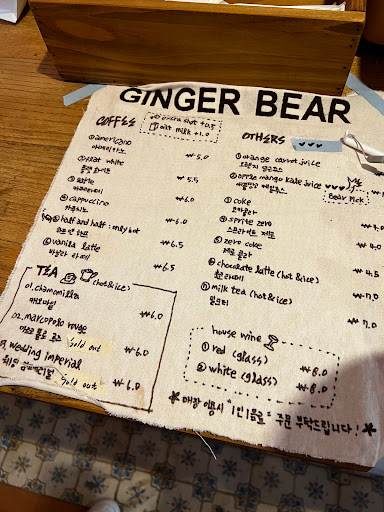 GINGER BEAR
COFFEE
extra shot +0.5
oat milk +1.0
① americano ₩5.0
아메리카노
② flat white ₩5.5
플랫 화이트
③ latte
④ cappuccino ₩6.0
카푸치노
half and half : only hot ₩6.0
⑥ vanilla latte ₩6.5
바닐라 라떼
₩6.5
TEA (hot&ice)
01. chamomilla ₩6.0
캐모마일
02. marcopolo rouge
마르코 폴로 루즈 sold out ₩6.0
03. wedding imperial
웨딩 임페리얼 sold out ₩6.0
OTHERS
① orange carrot juice
오렌지 당근주스
② apple mango kale juice
애플망고 케일주스
Bear Pick
③ coke
코카콜라
④ sprite zero
스프라이트 제로
⑤ zero coke ₩4.0
제로 콜라
⑥ chocolate latte (hot&ice) ₩4.5
초코라떼
⑦ milk tea (hot&ice) ₩7.0
밀크티
₩7.0
house wine
① red (glass) ₩8.0
② white (glass) ₩8.0
★ 매장 이용시 "1인 1음료" 주문 부탁드립니다! ★